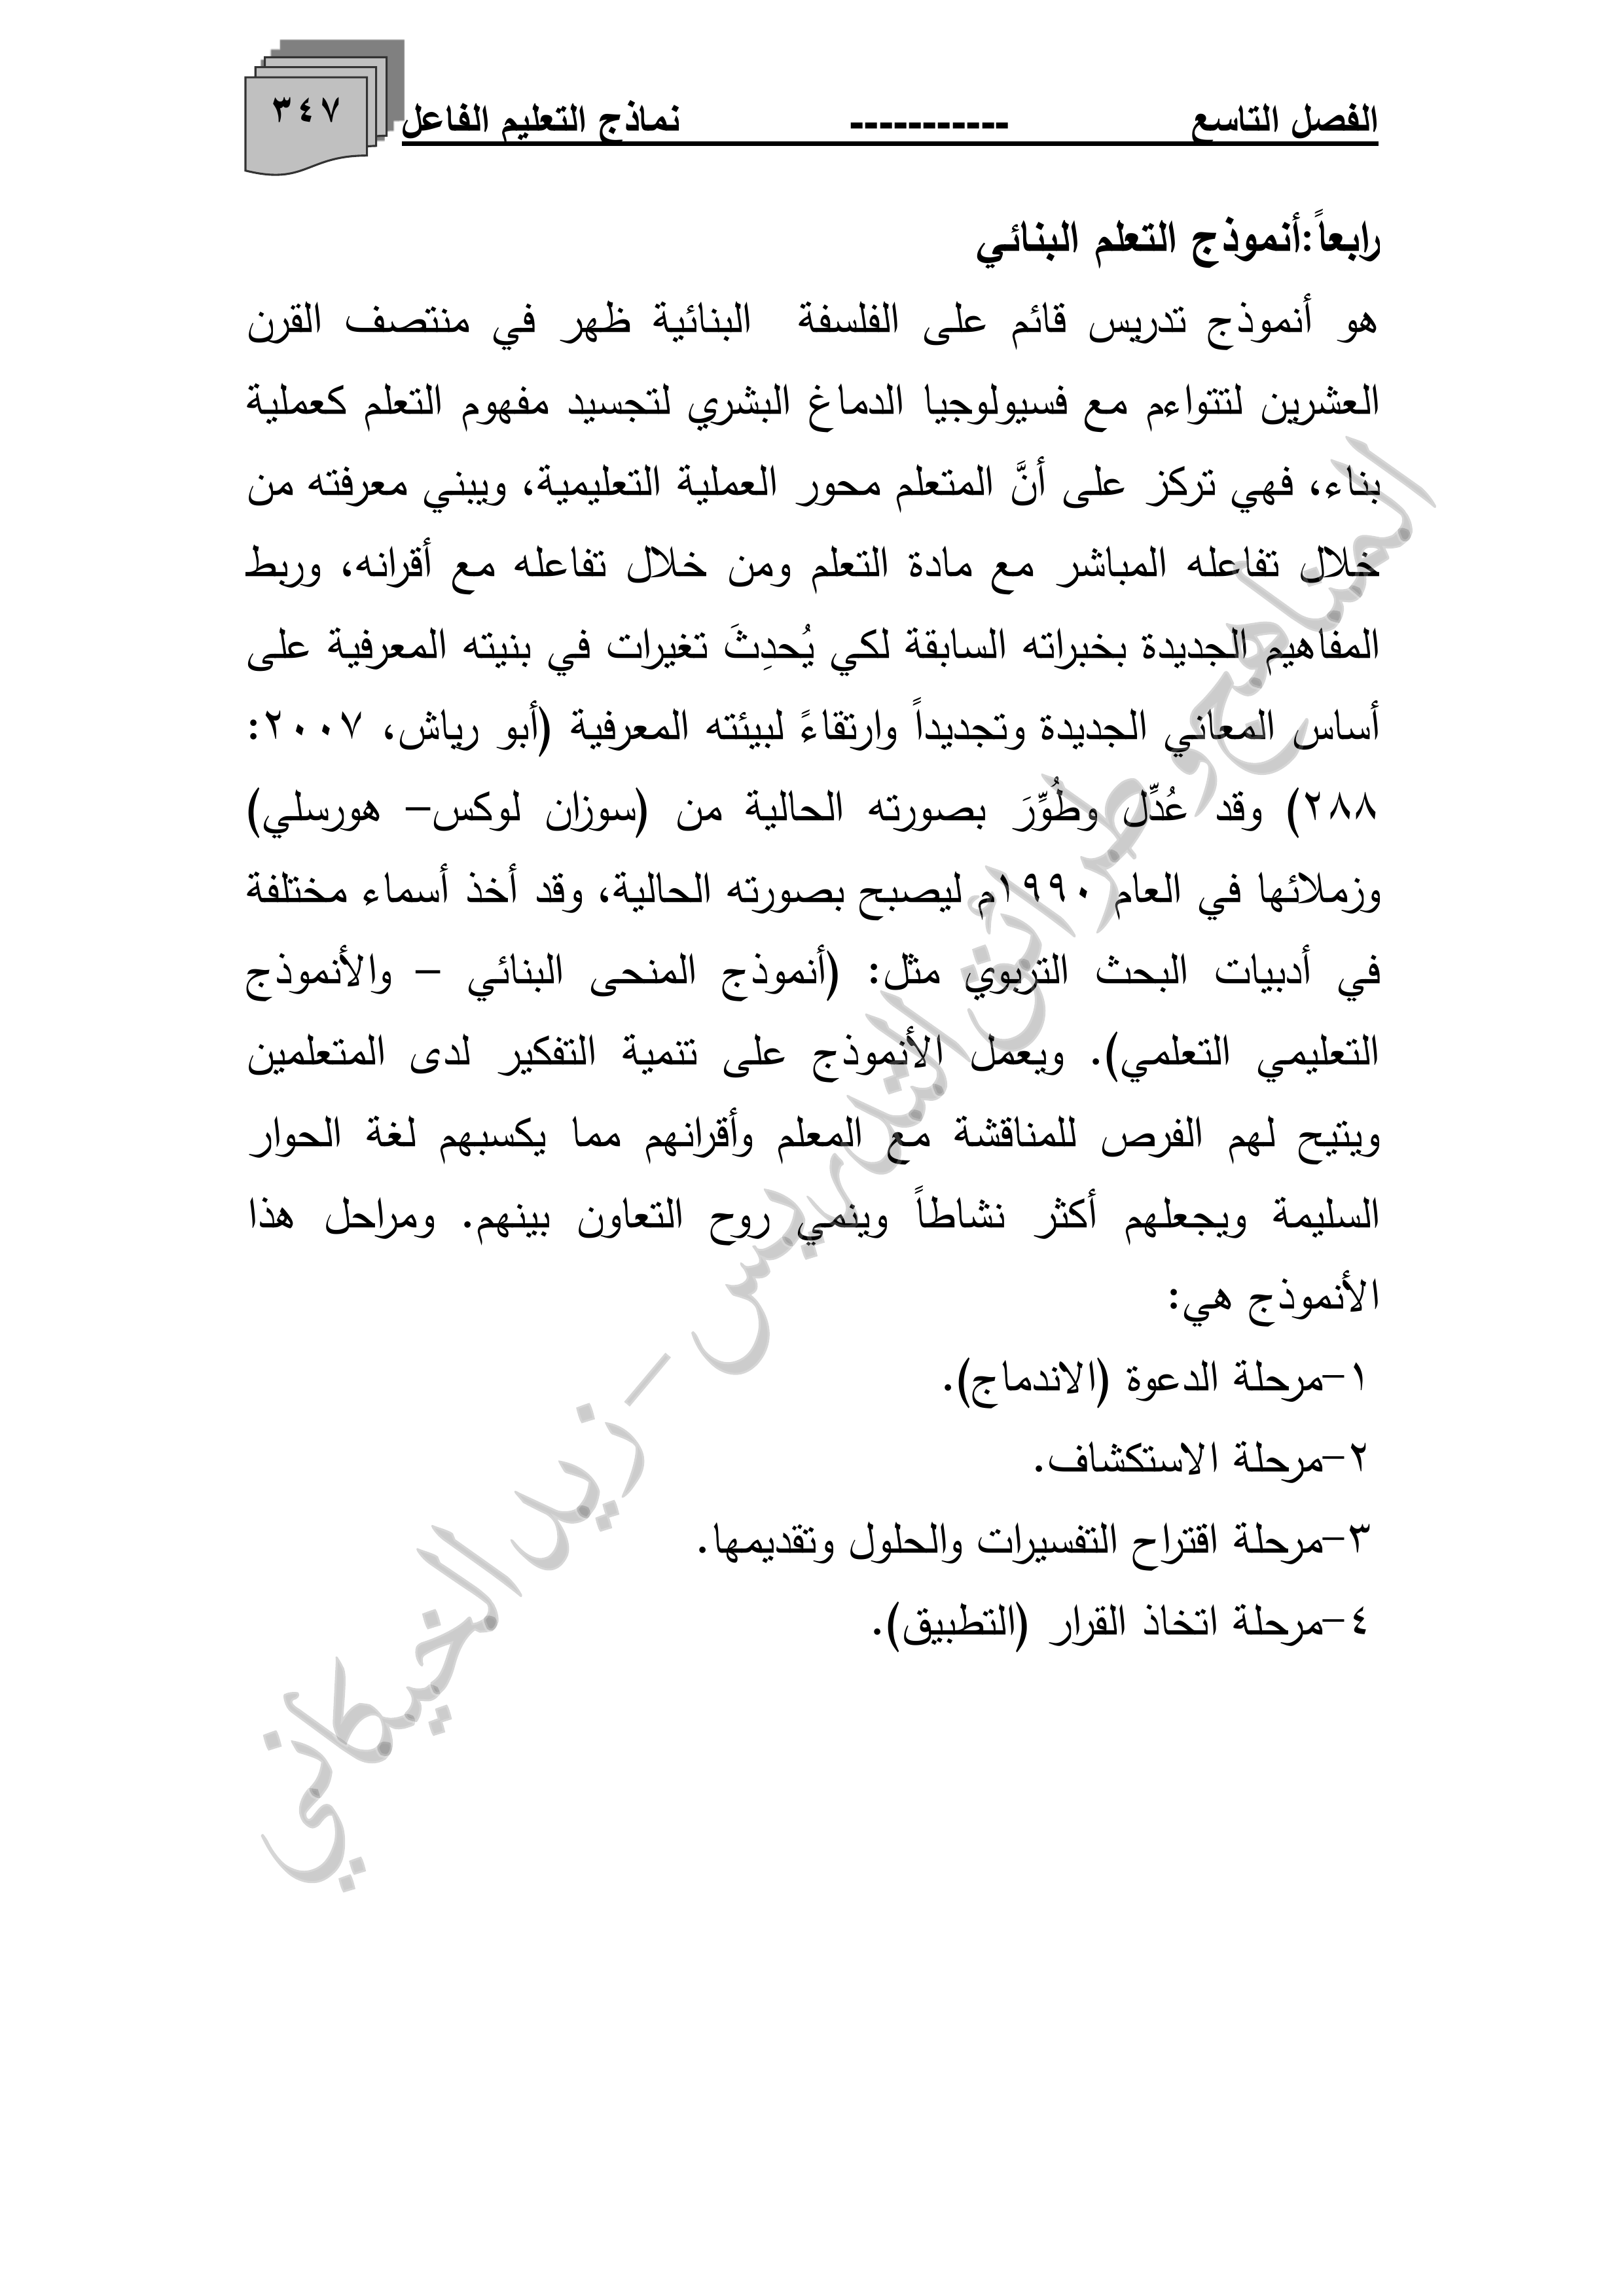 الفصل التاسع ----------- نماذج التعليم الفاعل
٣٤٧
رابعاً:أنموذج التعلم البنائي
هو أنموذج تدريس قائم على الفلسفة البنائية ظهر في منتصف القرن
العشرين لتتواءم مع فسيولوجيا الدماغ البشري لتجسيد مفهوم التعلم كعملية
بناء، فهي تركز على أنَّ المتعلم محور العملية التعليمية، ويبني معرفته من
خلال تفاعله المباشر مع مادة التعلم ومن خلال تفاعله مع أقرانه، وربط
المفاهيم الجديدة بخبراته السابقة لكي يُحدِثَ تغيرات في بنيته المعرفية على
أساس المعاني الجديدة وتجديداً وارتقاءً لبيئته المعرفية (أبو رياش، ٢٠٠٧:
٢٨٨) وقد عُدِّل وطُوِّرَ بصورته الحالية من (سوزان لوكس– هورسلي)
وزملائها في العام ١٩٩٠م ليصبح بصورته الحالية، وقد أخذ أسماء مختلفة
في أدبيات البحث التربوي مثل: (أنموذج المنحى البنائي – والأنموذج
التعليمي التعلمي). ويعمل الأنموذج على تنمية التفكير لدى المتعلمين
ويتيح لهم الفرص للمناقشة مع المعلم وأقرانهم مما يكسبهم لغة الحوار
السليمة ويجعلهم أكثر نشاطاً وينمي روح التعاون بينهم. ومراحل هذا
الأنموذج هي:
١–مرحلة الدعوة (الاندماج).
٢–مرحلة الاستكشاف.
٣–مرحلة اقتراح التفسيرات والحلول وتقديمها.
٤–مرحلة اتخاذ القرار (التطبيق).
المناهج وطرائق التدريس – زيد الخيكاني